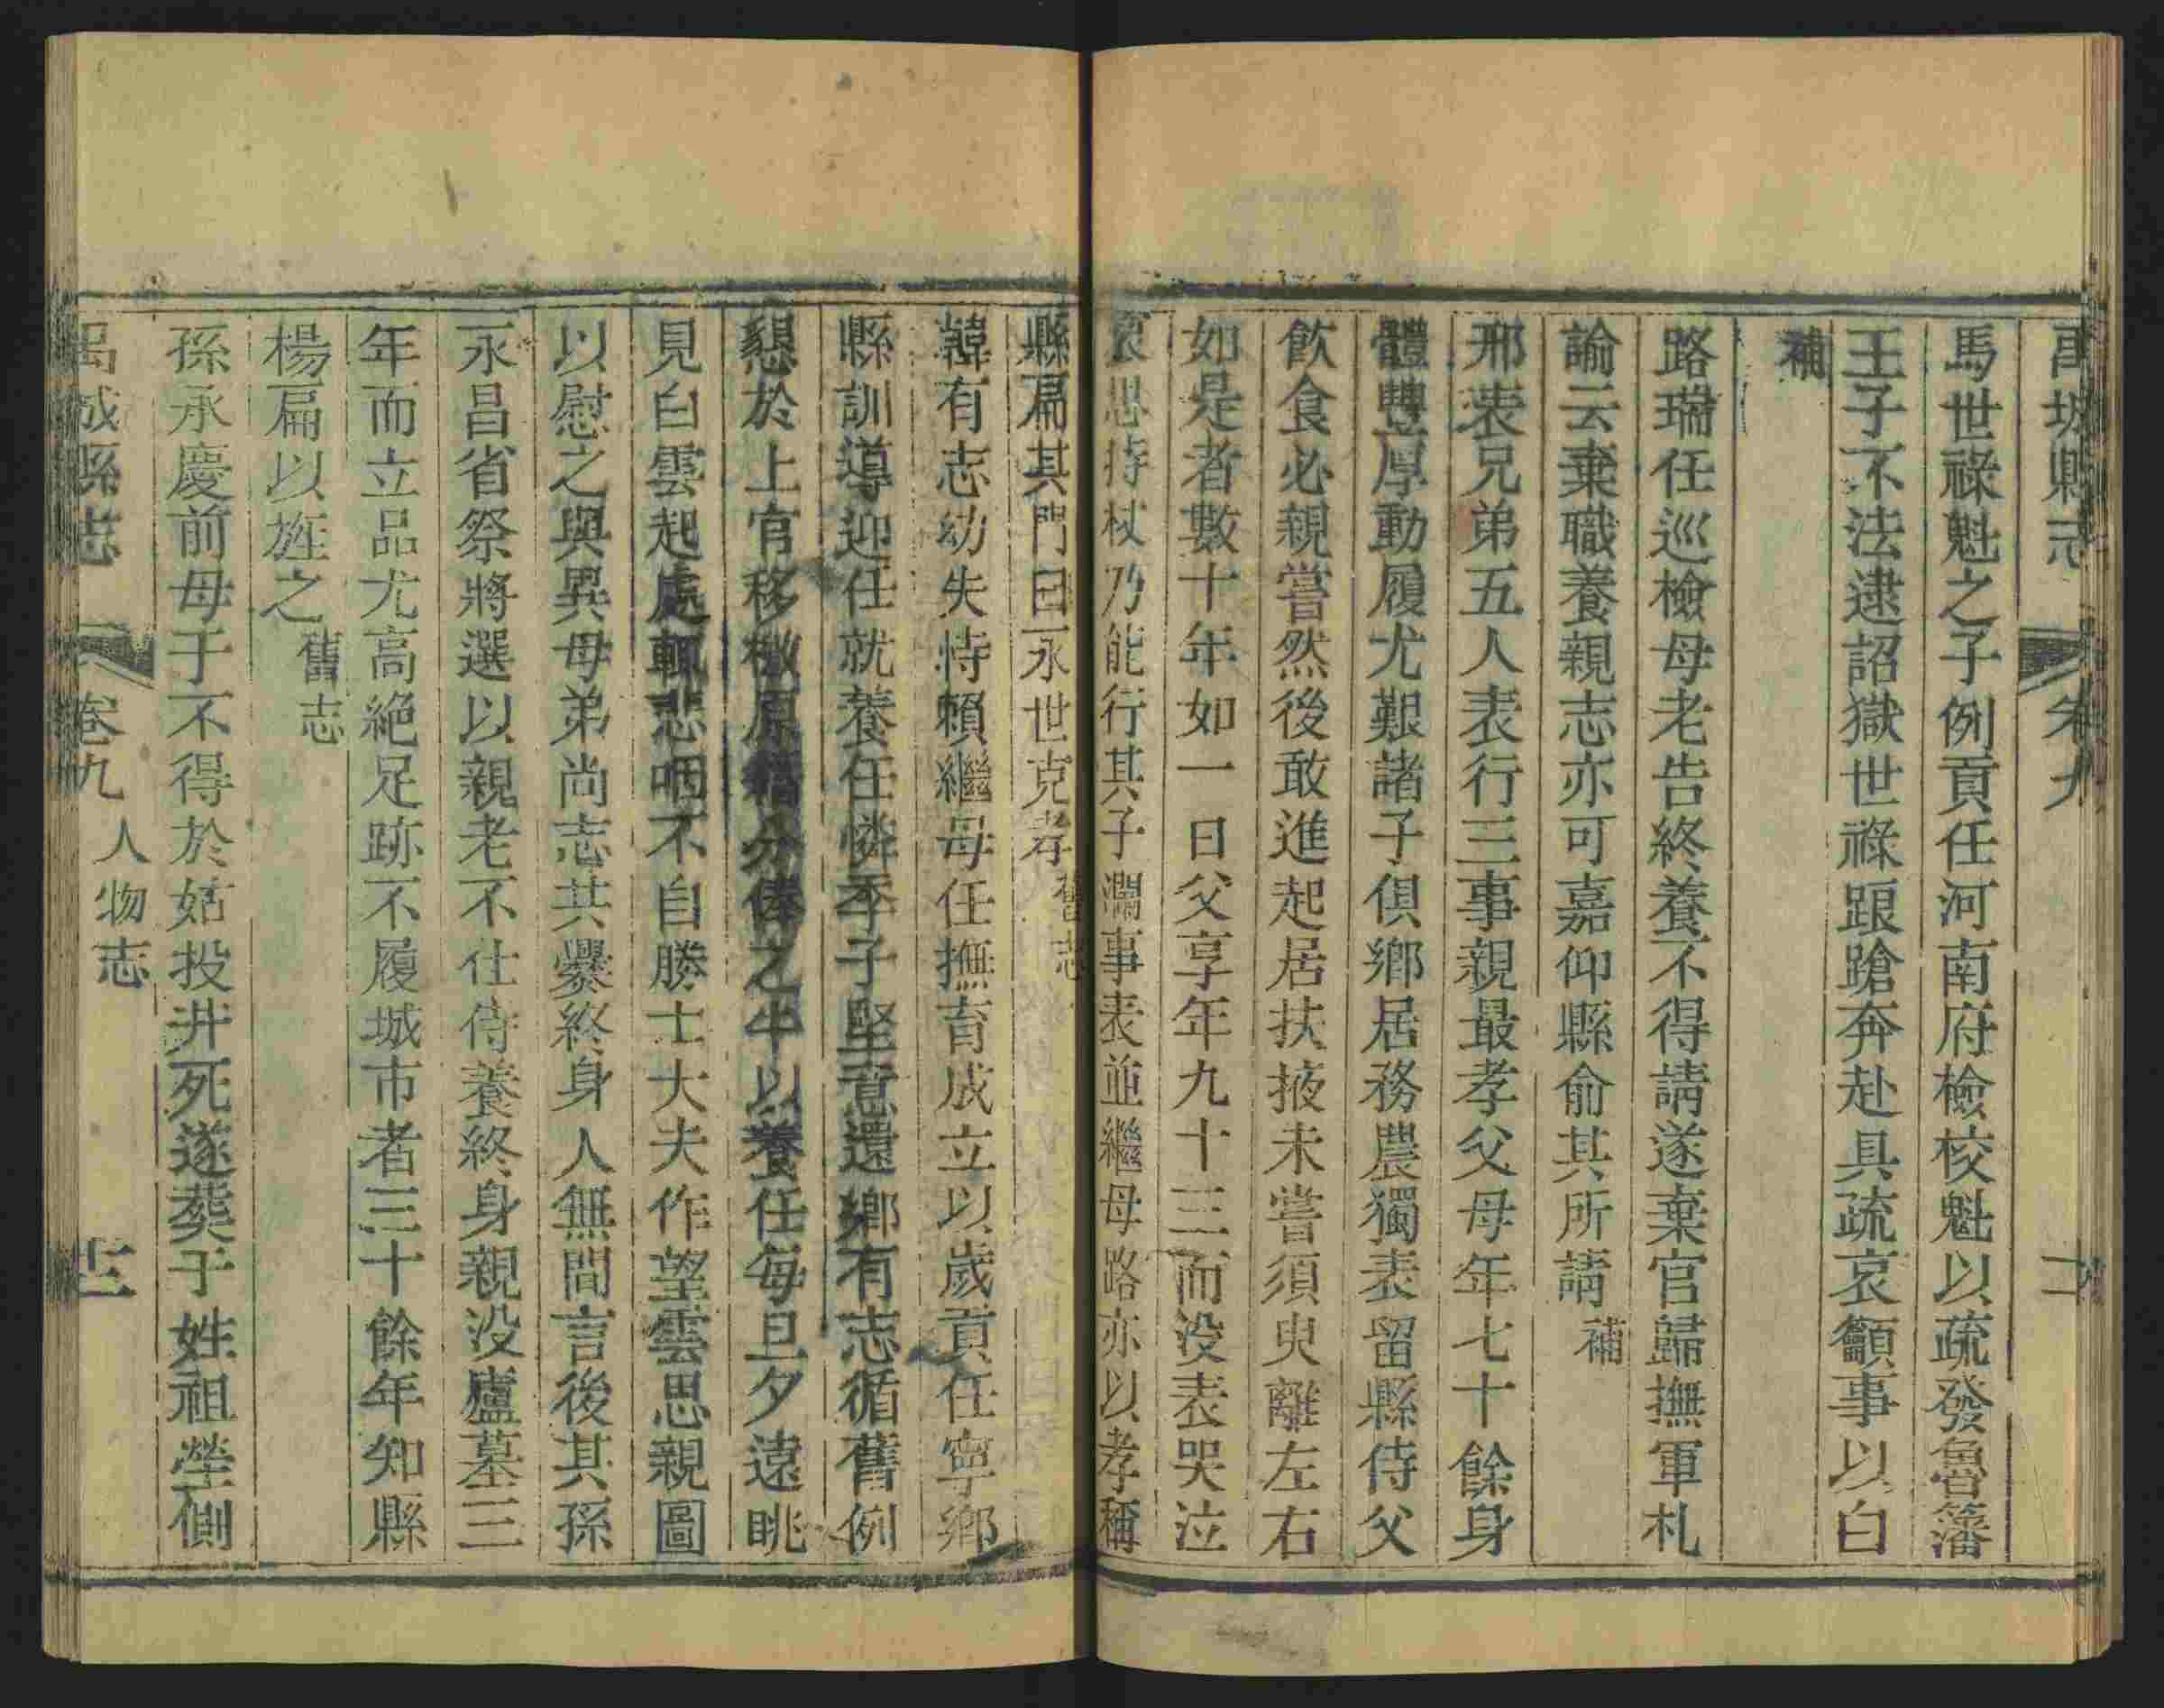 禹城縣志 卷九
馬世祿魁之子例貢任河南府檢校魁以疏發魯藩
王子不法逮詔獄世祿踉蹌奔赴具疏哀籲事以白
補
路瑞任巡檢母老告終養不得請遂棄官歸撫軍札
諭云棄職養親志亦可嘉仰縣俞其所請補
邢表兄弟五人表行三事親最孝父母年七十餘身
體豐厚動履尤艱諸子俱鄉居務農獨表留縣侍父
飲食必親嘗然後敢進起居扶掖未嘗須臾離左右
如是者數十年如一日父享年九十三而没表哭泣
哀思待杖乃能行其子瀾事表並繼母路亦以孝稱
縣扁其門曰永世克孝舊志
韓有志幼失恃賴繼母任撫育成立以歲貢任寧鄉
縣訓導迎任就養任憐季子堅意還鄉有志循舊例
懇於上官移檄原籍分俸之半以養任每旦夕遠眺
見白雲起處輒悲咽不自勝士大夫作望雲思親圖
以慰之與異母弟尚志共爨終身人無間言後其孫
永昌省祭將選以親老不仕侍養終身親没廬墓三
年而立品尤高絶足跡不履城市者三十餘年知縣
楊扁以旌之舊志
孫承慶前母于不得於姑投井死遂葬于姓祖塋側
禹城縣志 卷九 人物志 十三